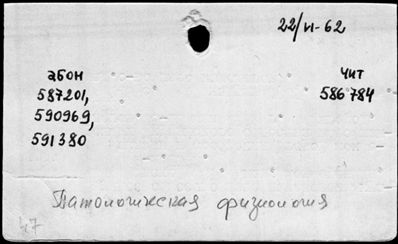 22/VI-62
абон
чит
587201,
586784
590969,
591380
Патологическая физиология
47